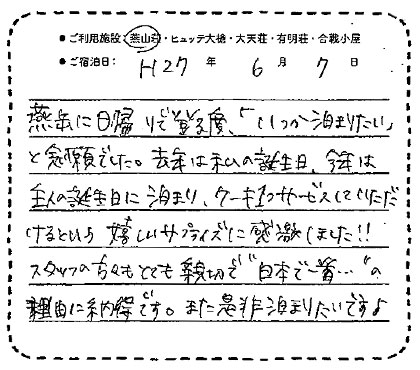 ●ご利用施設：燕山荘・ヒュッテ大槍・大天荘・有明荘・合戦小屋
●ご宿泊日： H27 年 6 月 7 日
燕岳に日帰りで登る度、「いつか泊まりたい」
と念願でした。去年は私の誕生日、今年は
主人の誕生日に泊まり、ケーキ1つサービスしていただ
けるという嬉しいサプライズに感激しました!!
スタッフの方々もとても親切で"日本で一番…"の
理由に納得です。また是非泊まりたいですよ